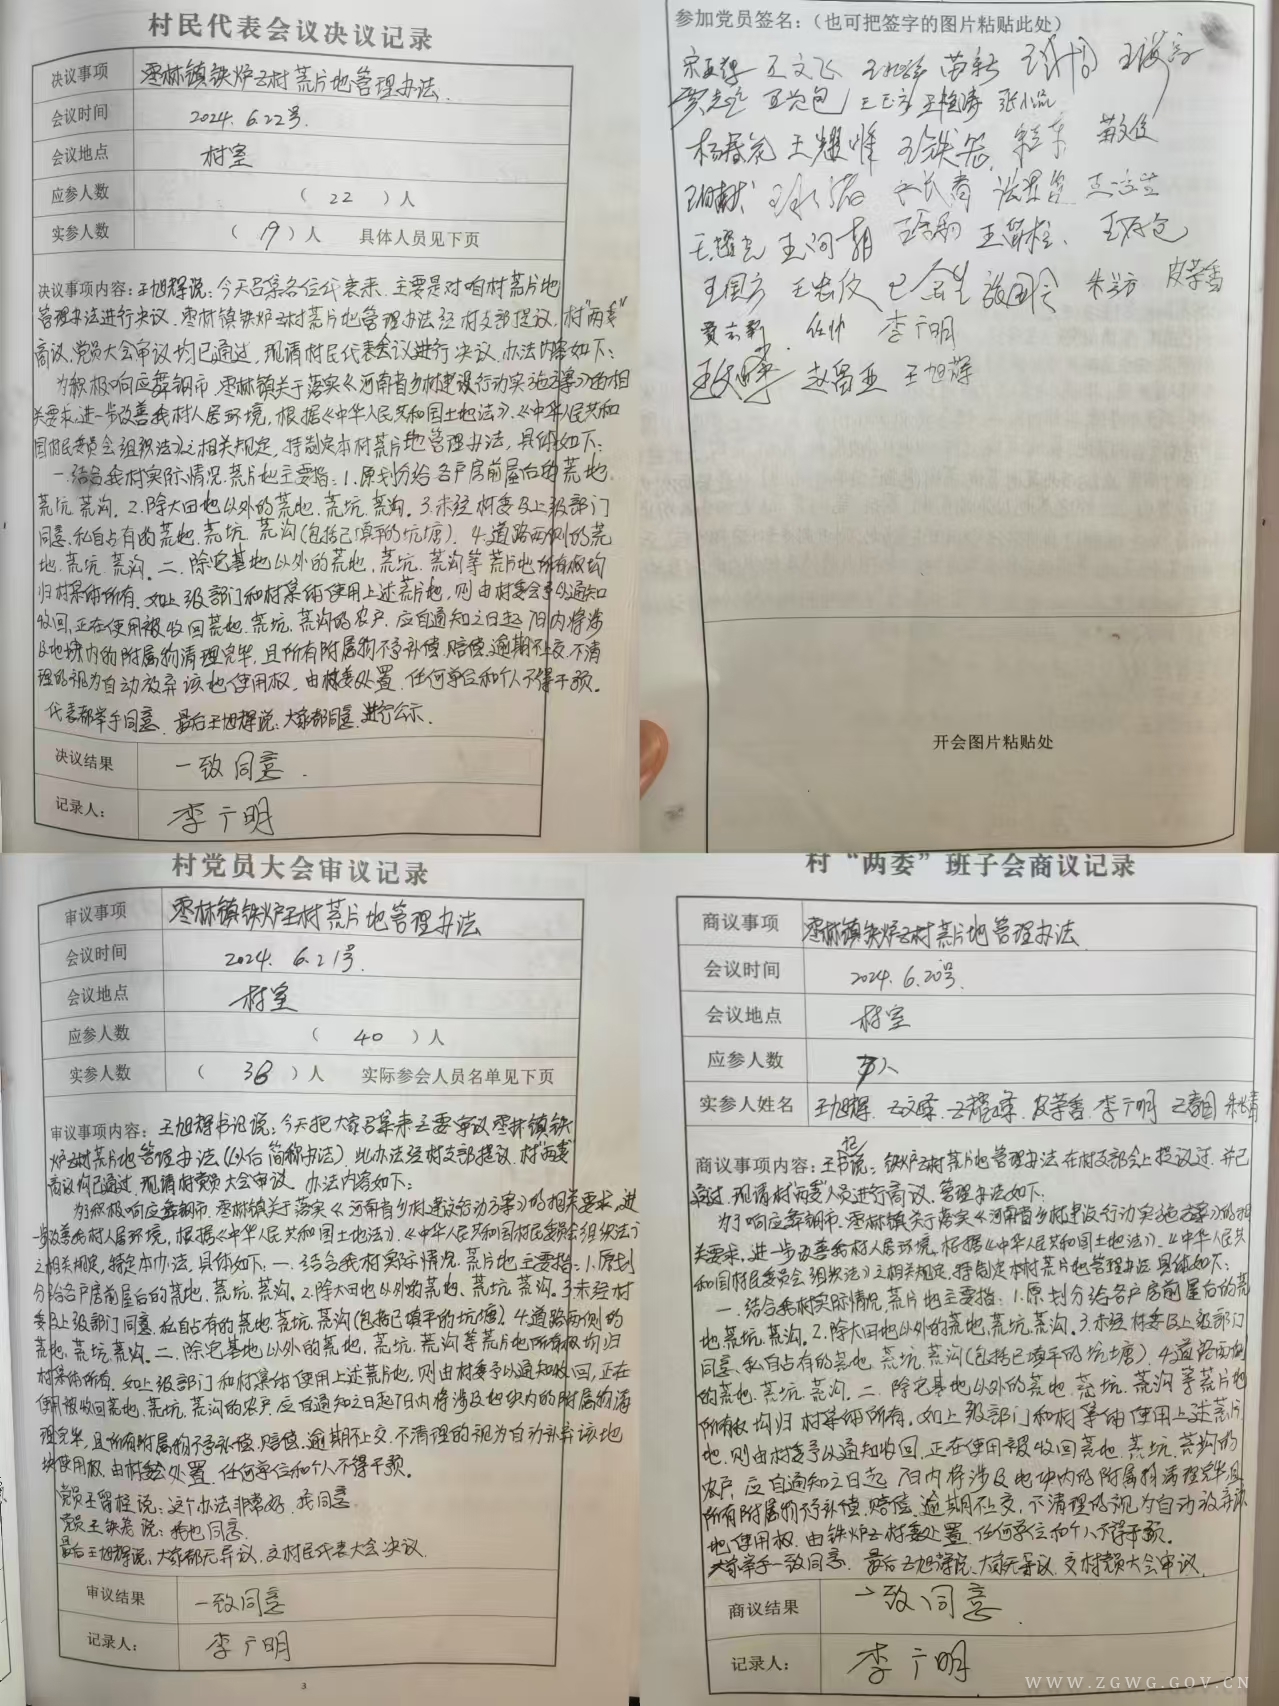 村民代表会议决议记录
决议事项 枣林镇铁炉王村荒片地管理办法.
会议时间 2024.6.22号.
会议地点 村室
应参人数 （ 22 ）人
实参人数 （ 19 ）人 具体人员见下页
决议事项内容：王旭辉说：今天召集各位代表来，主要是对咱村荒片地
管理办法进行决议，枣林镇铁炉王村荒片地管理办法经村支部提议，村“两委”
商议，党员大会审议均已通过，现请村民代表会议进行决议，办法内容如下：
为积极响应舞钢市、枣林镇关于落实《河南省乡村建设行动实施方案》的相
关要求，进一步改善我村人居环境，根据《中华人民共和国土地法》、《中华人民共和
国村民委员会组织法》之相关规定，特制定本村荒片地管理办法，具体如下：
一.结合我村实际情况，荒片地主要指：1.原划分给各户房前屋后的荒地、
荒坑、荒沟。2.除大田地以外的荒地、荒坑、荒沟。3.未经村委及上级部门
同意，私自占有的荒地、荒坑、荒沟（包括已填平的坑塘）.4.道路两侧的荒
地、荒坑、荒沟。二、除宅基地以外的荒地、荒坑、荒沟等荒片地所有权均
归村集体所有，如上级部门和村集体使用上述荒片地，则由村委会予以通知
收回，正在使用被收回荒地、荒坑、荒沟的农户，应自通知之日起7日内将涉
及地块内的附属物清理完毕，且所有附属物不予补偿、赔偿，逾期不交、不清
理的视为自动放弃该地使用权，由村委处置，任何单位和个人不得干预。
代表都举手同意，最后王旭辉说：大家都同意，进行公示.
决议结果 一致同意.
记录人： 李广明
参加党员签名：（也可把签字的图片粘贴此处）
王文飞
杨春花 王耀唯 王铁岩
王浏朝 王留栓
王国方 皮荣香
任帅 李广明
赵留亚 王旭辉
开会图片粘贴处
村党员大会审议记录
审议事项 枣林镇铁炉王村荒片地管理办法
会议时间 2024.6.21号.
会议地点 村室
应参人数 （ 40 ）人
实参人数 （ 38 ）人 实际参会人员名单见下页
审议事项内容：王旭辉书记说：今天把大家召集来主要审议枣林镇铁
炉王村荒片地管理办法（以后简称办法）此办法经村支部提议，村“两委”
商议均已通过，现请村党员大会审议，办法内容如下：
为积极响应舞钢市、枣林镇关于落实《河南省乡村建设行动方案》的相关要求，进
一步改善我村人居环境，根据《中华人民共和国土地法》、《中华人民共和国村民委员会组织法》
之相关规定，特定本办法，具体如下：一、结合我村实际情况，荒片地主要指：1.原划
分给各户房前屋后的荒地、荒坑、荒沟。2.除大田地以外的荒地、荒坑、荒沟。3.未经村
委及上级部门同意，私自占有的荒地、荒坑、荒沟（包括已填平的坑塘）4.道路两侧的
荒地、荒坑、荒沟。二、除宅基地以外的荒地、荒坑、荒沟等荒片地所有权均归
村集体所有，如上级部门和村集体使用上述荒片地，则由村委予以通知收回，正在
使用被收回荒地、荒坑、荒沟的农户，应自通知之日起7日内将涉及地块内的附属物清
理完毕，且所有附属物不予补偿、赔偿，逾期不交、不清理的视为自动放弃该地
块使用权，由村委处置，任何单位和个人不得干预。
党员王留栓说：这个办法非常好，我同意.
党员王铁岩说：我也同意.
最后王旭辉说：大家都无异议，交村民代表大会决议.
审议结果 一致同意
记录人： 李广明
3
村“两委”班子会商议记录
商议事项 枣林镇铁炉王村荒片地管理办法.
会议时间 2024.6.20号.
会议地点 村室
应参人数 7人
实参人姓名 王旭辉、王文 王耀 皮荣香、李广明 王春国 朱长青
商议事项内容：王书记说：铁炉王村荒片地管理办法在村支部会上提议过，并已
通过，现请村“两委”人员进行商议，管理办法如下：
为了响应舞钢市、枣林镇关于落实《河南省乡村建设行动实施方案》的相
关要求，进一步改善我村人居环境，根据《中华人民共和国土地法》、《中华人民共
和国村民委员会组织法》之相关规定，特制定本村荒片地管理办法，具体如下：
一.结合我村实际情况，荒片地主要指：1.原划分给各户房前屋后的荒
地、荒坑、荒沟。2.除大田地以外的荒地、荒坑、荒沟。3.未经村委及上级部门
同意、私自占有的荒地、荒坑、荒沟（包括已填平的坑塘）.4.道路两侧
的荒地、荒坑、荒沟。二、除宅基地以外的荒地、荒坑、荒沟等荒片地
所有权均归村集体所有，如上级部门和村集体使用上述荒片
地，则由村委予以通知收回，正在使用被收回荒地、荒坑、荒沟的
农户，应自通知之日起7日内将涉及地块内的附属物清理完毕且
所有附属物不予补偿、赔偿，逾期不交、不清理的视为自动放弃该
地使用权，由铁炉王村委处置，任何单位和个人不得干预。
大家举手一致同意，最后王旭辉说：大家无异议，交村党员大会审议.
商议结果 一致同意.
记录人： 李广明
WWW.ZGWG.GOV.CN